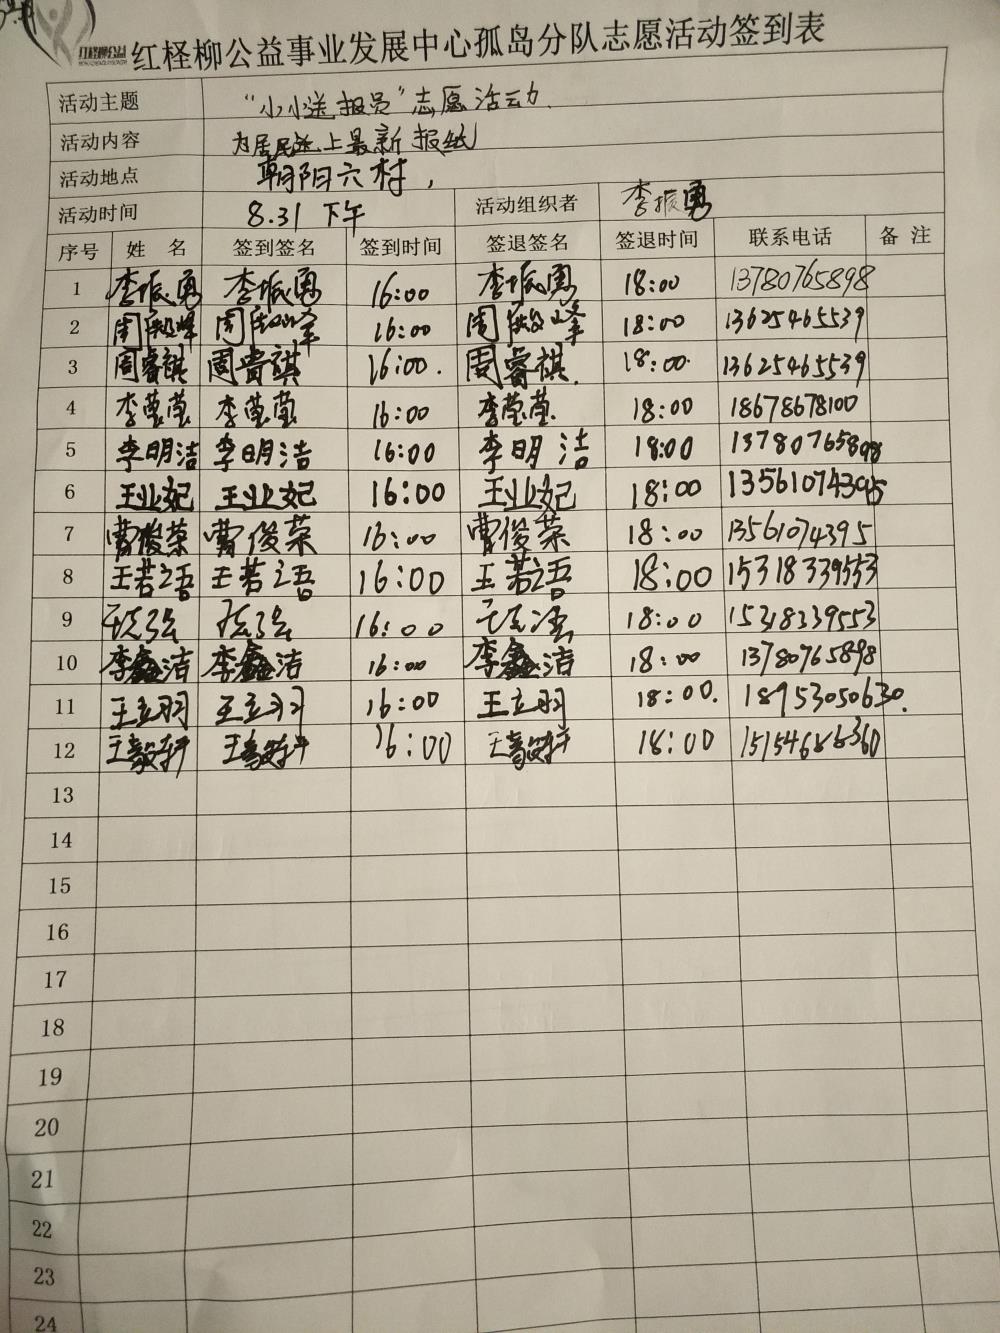 红柽柳公益
红柽柳公益事业发展中心孤岛分队志愿活动签到表
活动主题 “小小送报员”志愿活动.
活动内容 为居民送上最新报纸
活动地点 朝阳六村,
活动时间 8.31 下午 活动组织者 李振勇
序号 姓 名 签到签名 签到时间 签退签名 签退时间 联系电话 备 注
1 李振勇 李振勇 16:00 李振勇 18:00 13780765898
2 周 周 16:00 周 18:00 13625465539
3 周睿祺 周睿祺 16:00. 周睿祺. 18:00. 13625465539
4 李莹莹 李莹莹 16:00 李莹莹. 18:00 18678678100
5 李明洁 李明洁 16:00 李明洁 18:00 13780765898
6 王业妃 王业妃 16:00 王业妃 18:00 13561074395
7 曹俊荣 曹俊荣 16:00 曹俊荣 18:00 13561074395
8 王若语 王若语 16:00 王若语 18:00 15318339553
9 16:00 18:00 15318339553
10 李鑫洁 李鑫洁 16:00 李鑫洁 18:00 13780765898
11 王立羽 王立羽 16:00 王立羽 18:00. 18953050630.
12 王毅轩 王毅轩 16:00 王毅轩 18:00
13
14
15
16
17
18
19
20
21
22
23
24